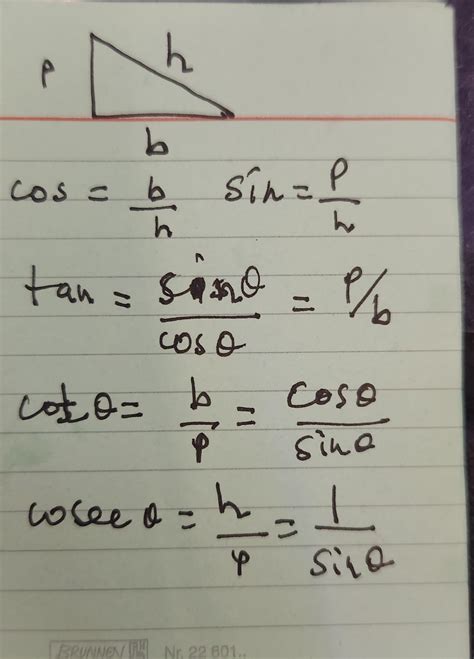 p h
b
cos = b/h sin = p/h
tan = sinθ/cosθ = p/b
cot θ = b/p = cosθ/sinθ
cosec θ = h/p = 1/sinθ
BRUNNEN Nr. 22 601..